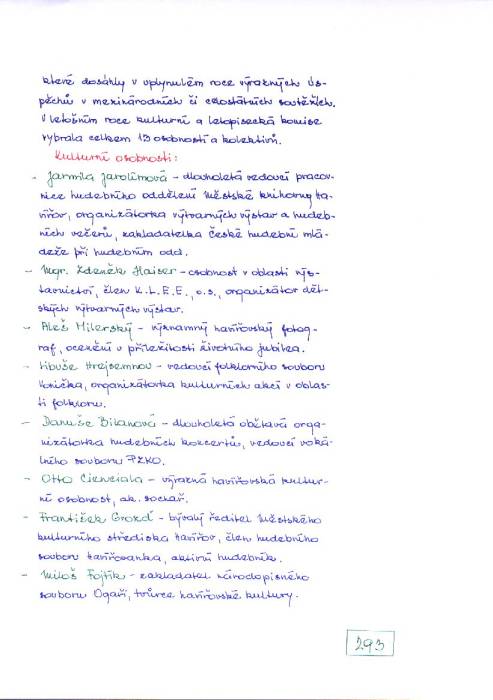 které dosáhly v uplynulém roce výrazných ús-
pěchů v mezinárodních či celostátních soutěžích.
V letošním roce kulturní a letopisecká komise
vybrala celkem 12 osobností a kolektivů.
Kulturní osobnosti:
- Jarmila Jarolímová - dlouholetá vedoucí pracov-
nice hudebního oddělení Městské knihovny Ha-
vířov, organizátorka výtvarných výstav a hudeb-
ních večerů, zakladatelka České hudební mlá-
deže při hudebním odd.
- Mgr. Zdeněk Haiser - osobnost v oblasti výs-
tavnictví, člen K.L.E.E., o.s., organizátor dět-
ských výtvarných výstav.
- Aleš Milerský - významný havířovský fotog-
raf, ocenění u příležitosti životního jubilea.
- Libuše Hrejsemnou - vedoucí folklorního souboru
Vonička, organizátorka kulturních akcí v oblas-
ti folkloru.
- Danuše Bilanová - dlouholetá obětavá orga-
nizátorka hudebních koncertů, vedoucí voká-
lního souboru PZKO.
- Otto Cienciala - výrazná havířovská kultur-
ní osobnost, ak. sochař.
- František Grozd - bývalý ředitel Městského
kulturního střediska Havířov, člen hudebního
souboru Havířovanka, aktivní hudebník.
- Miloš Fojtík - zakladatel národopisného
souboru Ogaři, tvůrce havířovské kultury.
293